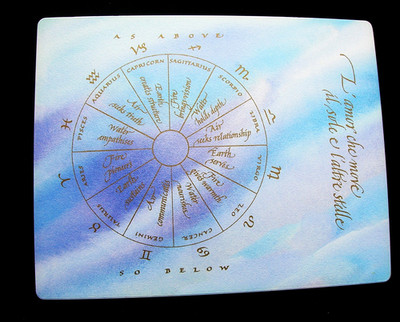 AS ABOVE
CAPRICORN
Earth
creates structure
SAGITTARIUS
Fire
brings vision
SCORPIO
Water
holds depth
LIBRA
Air
seeks relationship
VIRGO
Earth
serves
LEO
Fire
gives warmth
CANCER
Water
nourishes
GEMINI
Air
communicates
TAURUS
Earth
sustains
ARIES
Fire
pioneers
PISCES
Water
empathises
AQUARIUS
Air
seeks truth
SO BELOW
L'amor che move
il sole e l'altre stelle